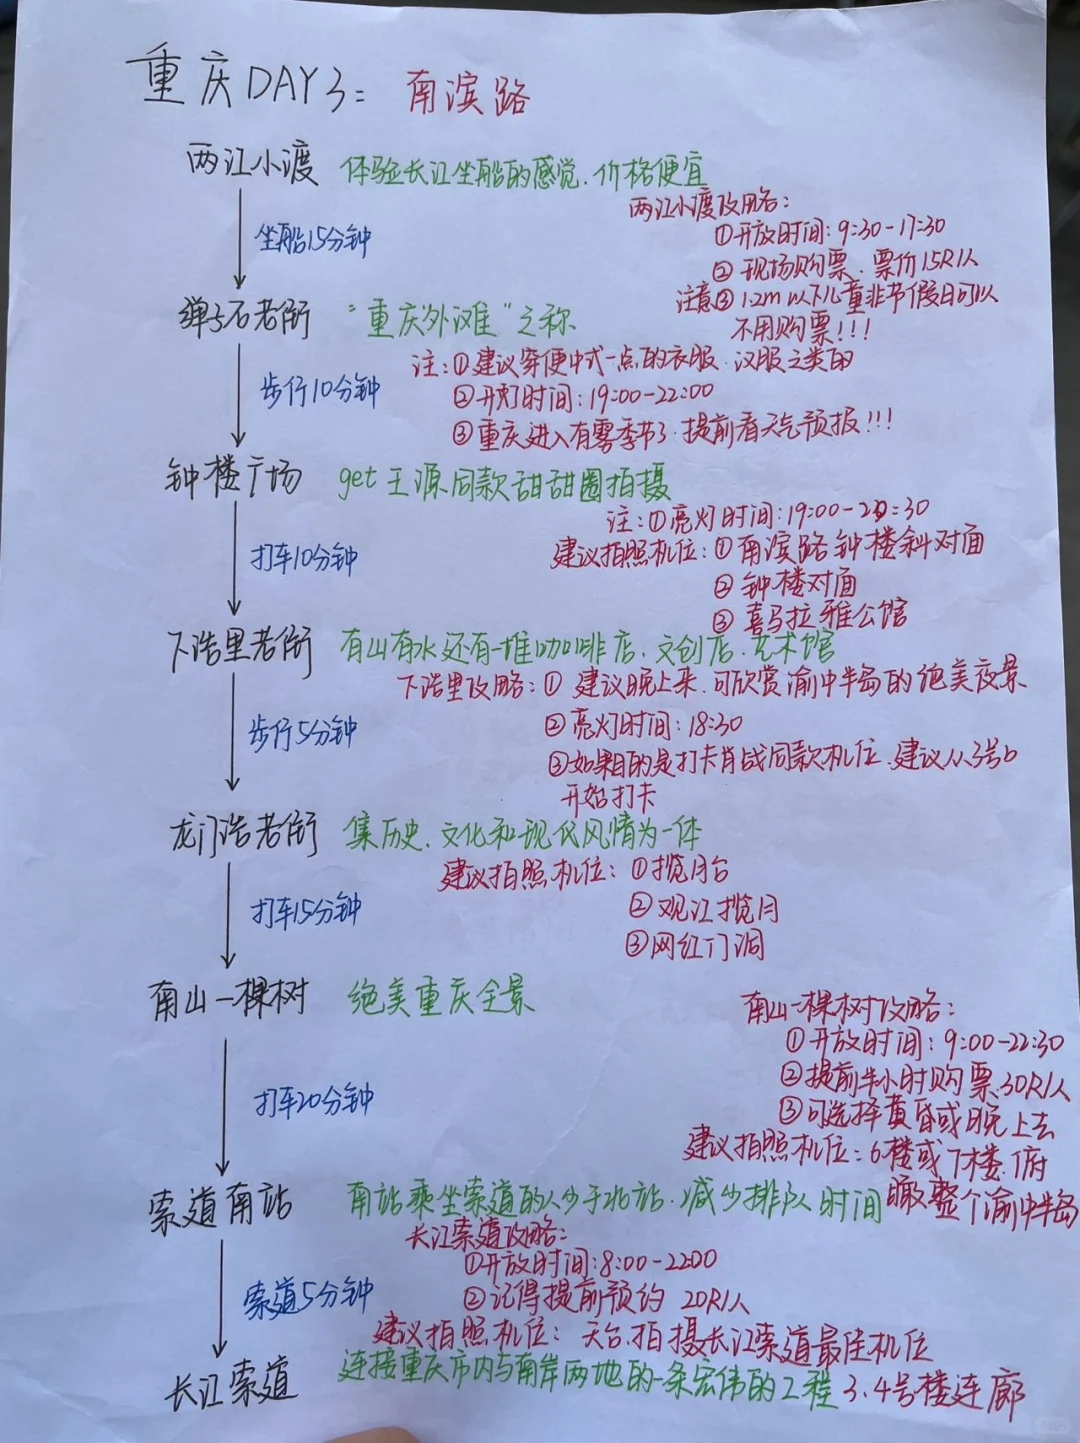 重庆DAY3：南滨路
两江小渡 体验长江坐船的感觉.价格便宜
两江小渡攻略：
①开放时间：9:30-17:30
坐船15分钟
②现场购票.票价15R/人
注意③1.2m以下儿童非节假日可以
不用购票!!!
弹子石老街 “重庆外滩”之称
注：①建议穿便中式一点的衣服.汉服之类的
步行10分钟
②开灯时间：19:00-22:00
③重庆进入有雾季节了.提前看天气预报!!!
钟楼广场 get王源同款甜甜圈拍摄
注：①亮灯时间：19:00-22:30
打车10分钟
建议拍照机位：①南滨路钟楼斜对面
②钟楼对面
③喜马拉雅公馆
下浩里老街 有山有水还有一堆咖啡店.文创店.艺术馆
下浩里攻略：①建议晚上来.可欣赏渝中半岛的绝美夜景
步行5分钟
②亮灯时间：18:30
③如果目的是打卡肖战同款机位.建议从3号b
开始打卡
龙门浩老街 集历史.文化和现代风情为一体
建议拍照机位：①揽月台
打车15分钟
②观江揽月
③网红门洞
南山一棵树 绝美重庆全景
南山一棵树攻略：
①开放时间：9:00-22:30
②提前半小时购票.30R/人
打车20分钟
③可选择黄昏或晚上去
建议拍照机位：6楼或7楼.俯
瞰整个渝中半岛
索道南站 南站乘坐索道的人少于北站.减少排队时间
长江索道攻略：
①开放时间：8:00-22:00
索道5分钟
②记得提前预约 20R/人
建议拍照机位：天台.拍摄长江索道最佳机位
3.4号楼连廊
长江索道 连接重庆市内与南岸两地的一条宏伟的工程